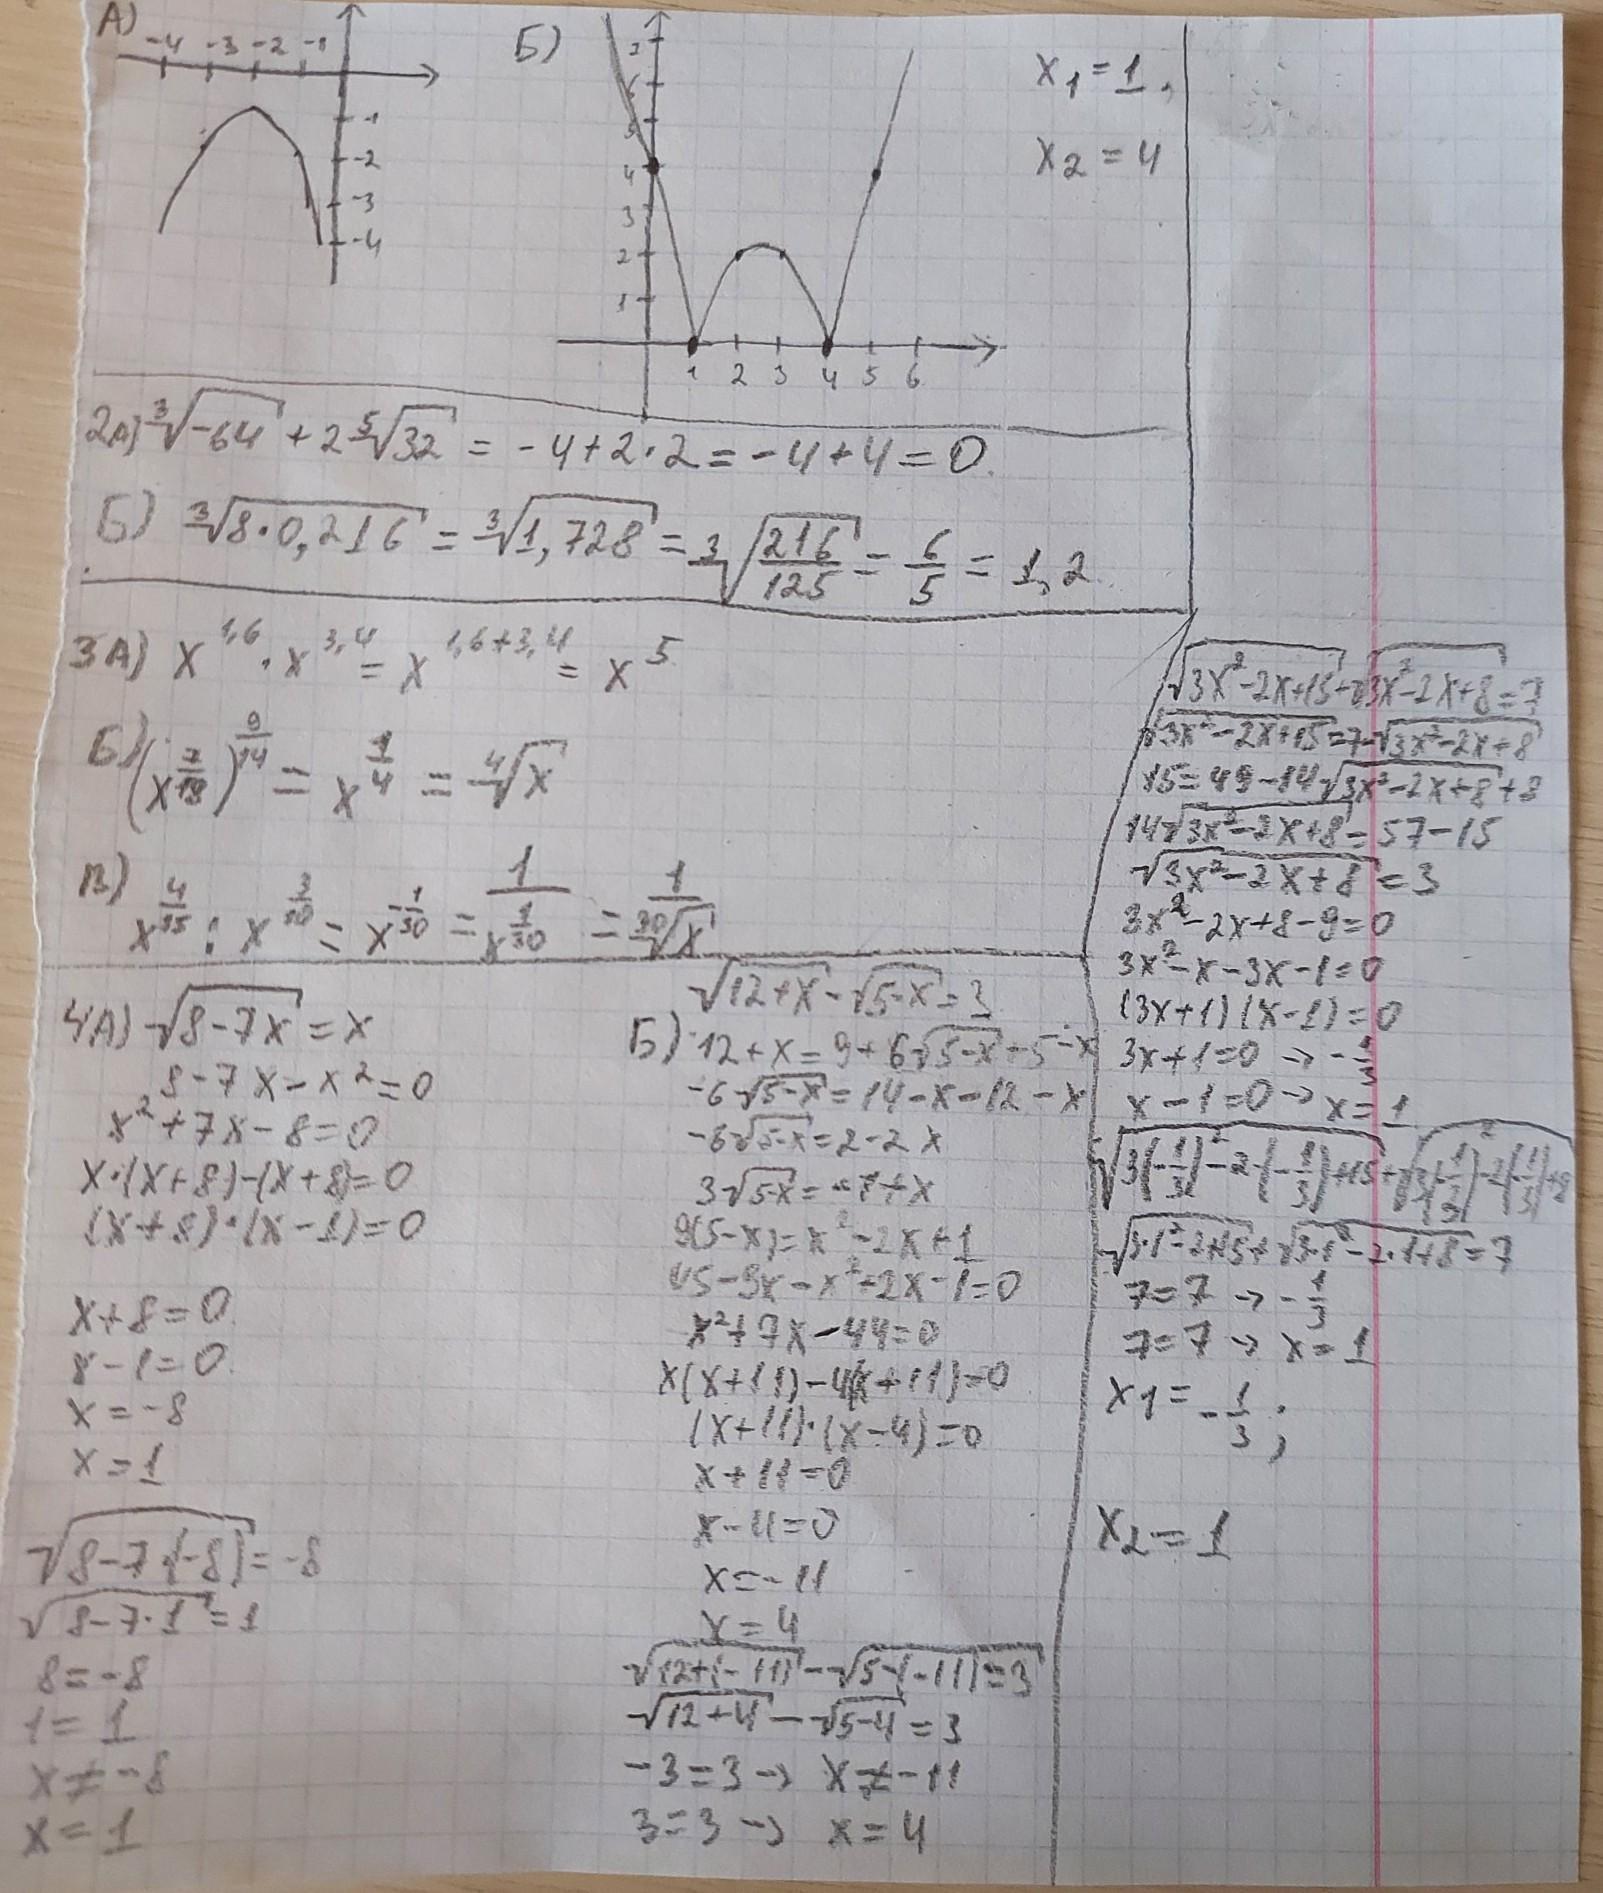 А)
-4 -3 -2 -1
-1
-2
-3
-4
Б)
7
6
5
4
3
2
1
1 2 3 4 5 6
x₁ = 1,
x₂ = 4
2А) ³√-64 + 2 ⁵√32 = -4+2·2 = -4+4 = 0.
Б) ³√8·0,216 = ³√1,728 = ³√(216/125) = 6/5 = 1,2
3А) x^1,6 · x^3,4 = x^1,6+3,4 = x^5
Б) (x^7/18)^9/14 = x^1/4 = ⁴√x
В) x^4/15 : x^3/10 = x^-1/30 = 1/x^1/30 = 1/³⁰√x
4А) √8-7x = x
8-7x-x² = 0
x²+7x-8=0
x·(x+8)-(x+8)=0
(x+8)·(x-1)=0
x+8=0
x-1=0
x=-8
x=1
√8-7·(-8) = -8
√8-7·1 = 1
8=-8
1=1
x≠-8
x=1
√12+x - √5-x = 3
Б) 12+x = 9+6√5-x+5-x
-6√5-x = 14-x-12-x
-6√5-x = 2-2x
3√5-x = -1+x
9(5-x) = x²-2x+1
45-9x-x²+2x-1=0
x²+7x-44=0
x(x+11)-4(x+11)=0
(x+11)·(x-4)=0
x+11=0
x-4=0
x=-11
x=4
√12+(-11) - √5-(-11) = 3
√12+4 - √5-4 = 3
-3=3 → x≠-11
3=3 → x=4
√3x²-2x+15 + √3x²-2x+8 = 7
√3x²-2x+15 = 7-√3x²-2x+8
15=49-14√3x²-2x+8+8
14√3x²-2x+8 = 57-15
√3x²-2x+8 = 3
3x²-2x+8-9=0
3x²-x-3x-1=0
(3x+1)(x-1)=0
3x+1=0 → -1/3
x-1=0 → x=1
√3(-1/3)²-2·(-1/3)+15 + √3(-1/3)²-2(-1/3)+8
√3·1²-2+15 + √3·1²-2·1+8 = 7
7=7 → -1/3
7=7 → x=1
x₁ = -1/3;
x₂ = 1